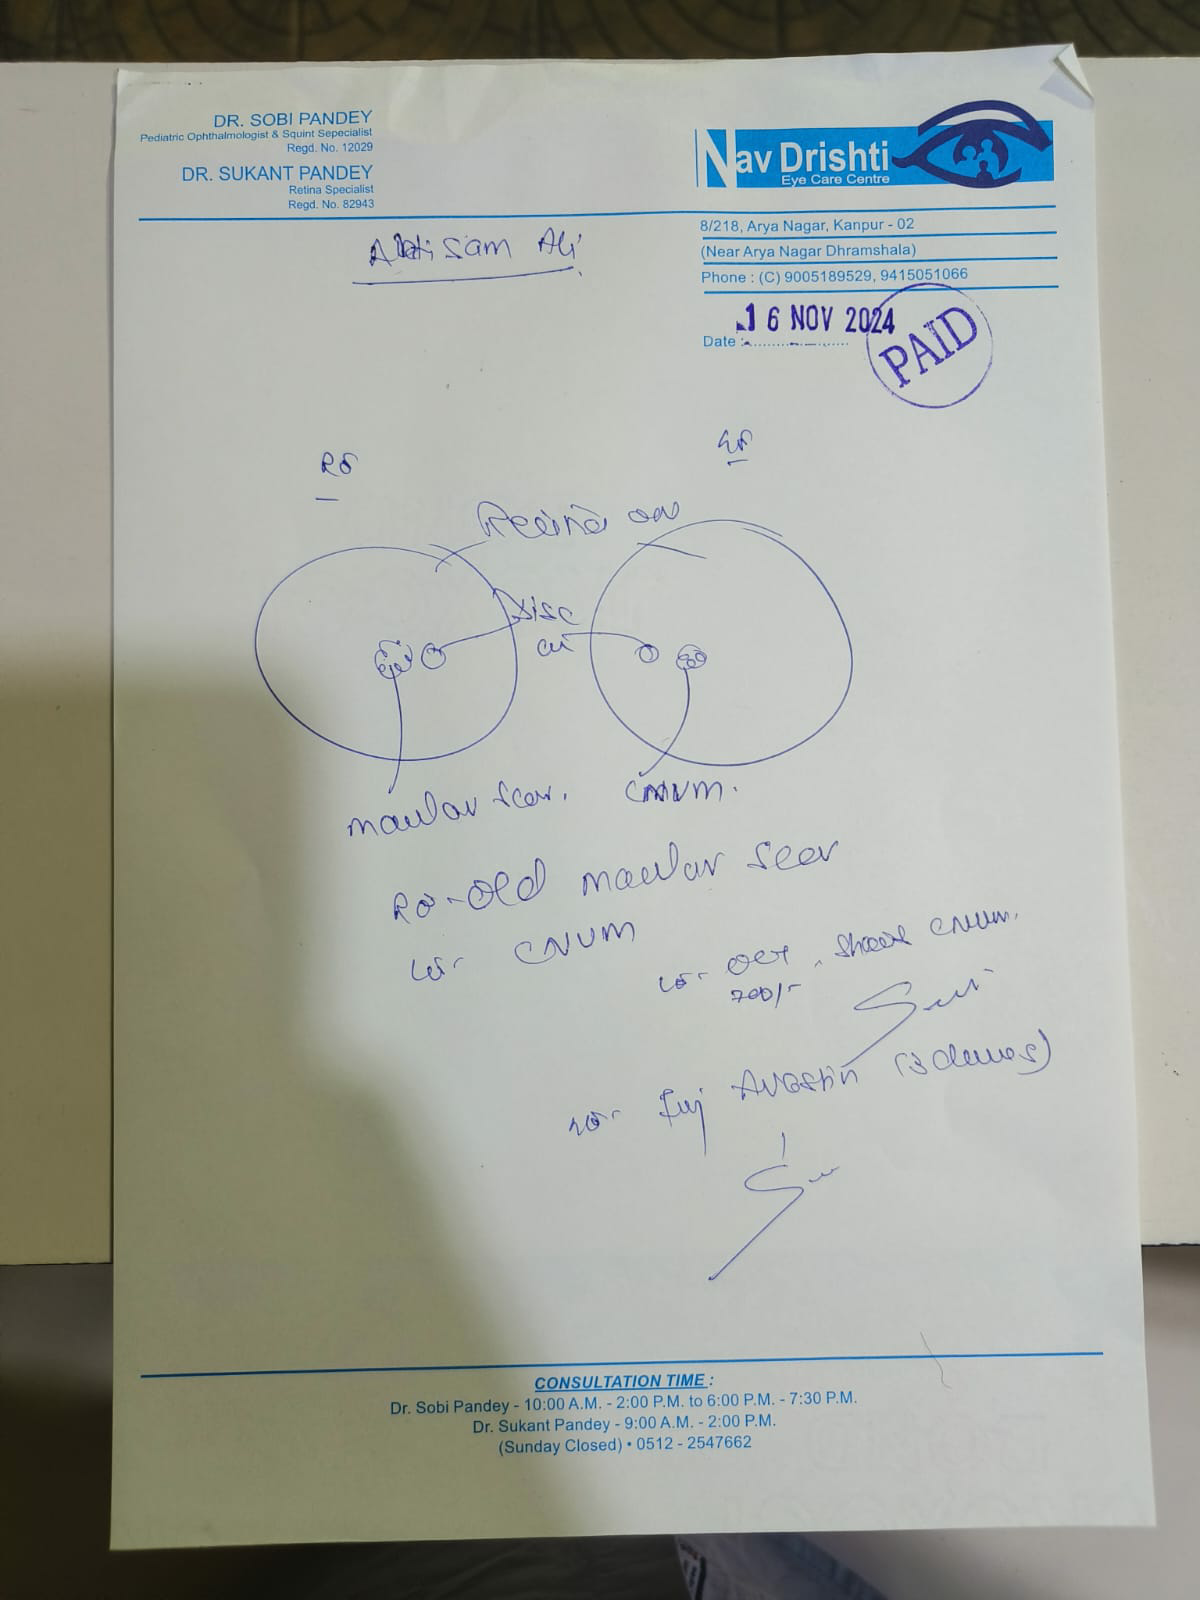 DR. SOBI PANDEY
Pediatric Ophthalmologist & Squint Sepecialist
Regd. No. 12029
DR. SUKANT PANDEY
Retina Specialist
Regd. No. 82943
Nav Drishti
Eye Care Centre
8/218, Arya Nagar, Kanpur - 02
(Near Arya Nagar Dhramshala)
Phone : (C) 9005189529, 9415051066
Ali
Date : 16 NOV 2024
PAID
RE
LE
Retina on
Disc
macular scar. CNVM.
RE - Old macular scar
LE - CNVM
LE - OCT, shows CNVM.
700/-
Inj Avastin (3 doses)
CONSULTATION TIME :
Dr. Sobi Pandey - 10:00 A.M. - 2:00 P.M. to 6:00 P.M. - 7:30 P.M.
Dr. Sukant Pandey - 9:00 A.M. - 2:00 P.M.
(Sunday Closed) • 0512 - 2547662